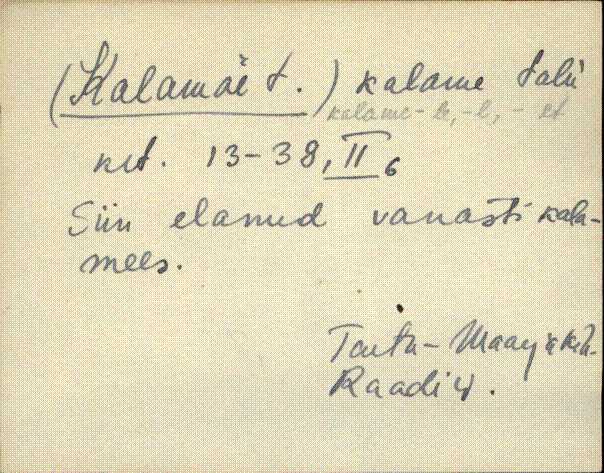 (Kalamäe t.) kalame talu
kalame-le, -l, - et
krt. 13-38, II 6
Siin elanud vanasti kala-
mees.
Tartu-Maarja kih.
Raadi v.